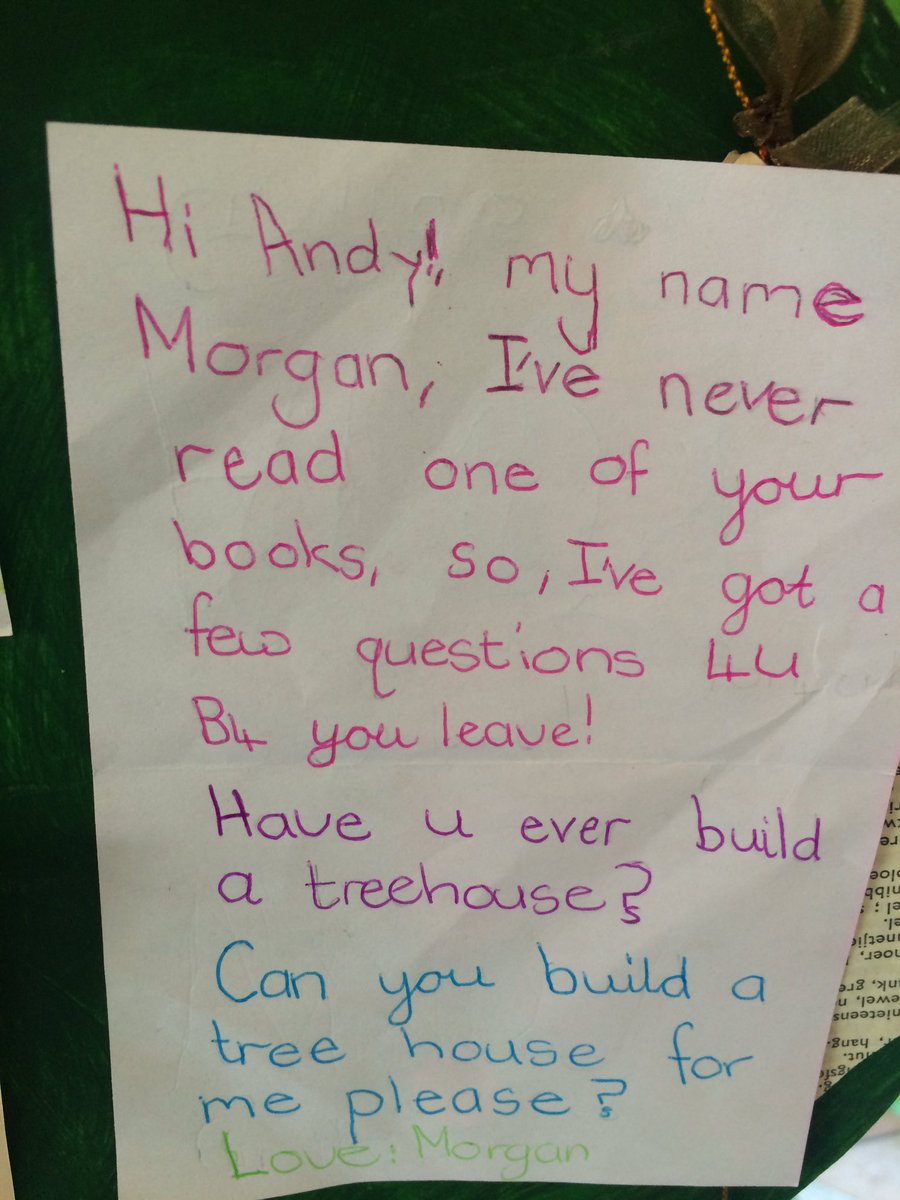 Hi Andy! my name
Morgan, I've never
read one of your
books, so, I've got a
few questions 4U
B4 you leave!
Have u ever build
a treehouse?
Can you build a
tree house for
me please?
Love: Morgan